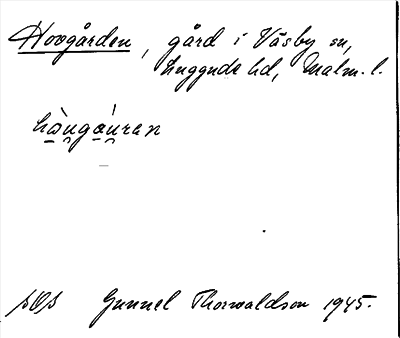 Hovgården, gård i Väsby sn,
Luggude hd, Malm. l.
hàu̯ngáu̯ran
SOS Gunnel Thorwaldson 1945.